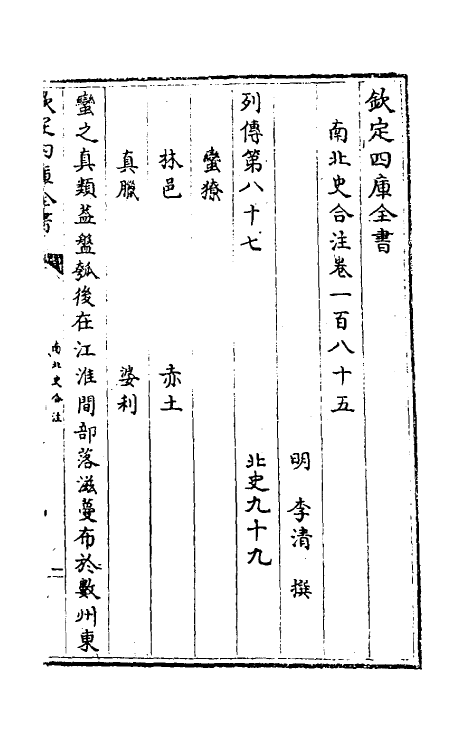 欽定四庫全書
南北史合注卷一百八十五
明　李清　撰
列傳第八十七　北史九十九
蠻獠
林邑　赤土
真臘　婆利
蠻之真類葢盤瓠後在江淮間部落滋蔓布於數州東
欽定四庫全書
南北史合注